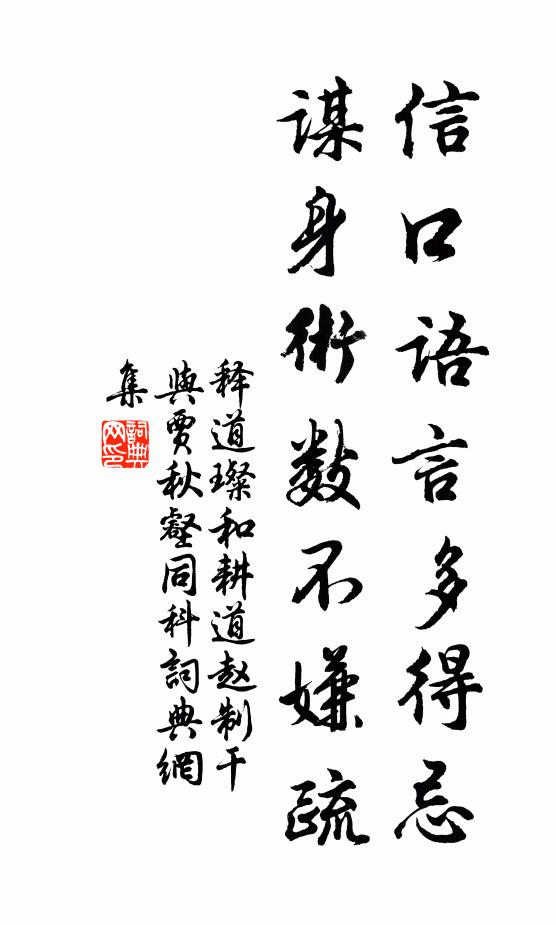 信口语言多得忌
谋身術数不嫌疏
释道璨和耕道赵制干
與贾秋壑同科詞典網
集
詞典网印